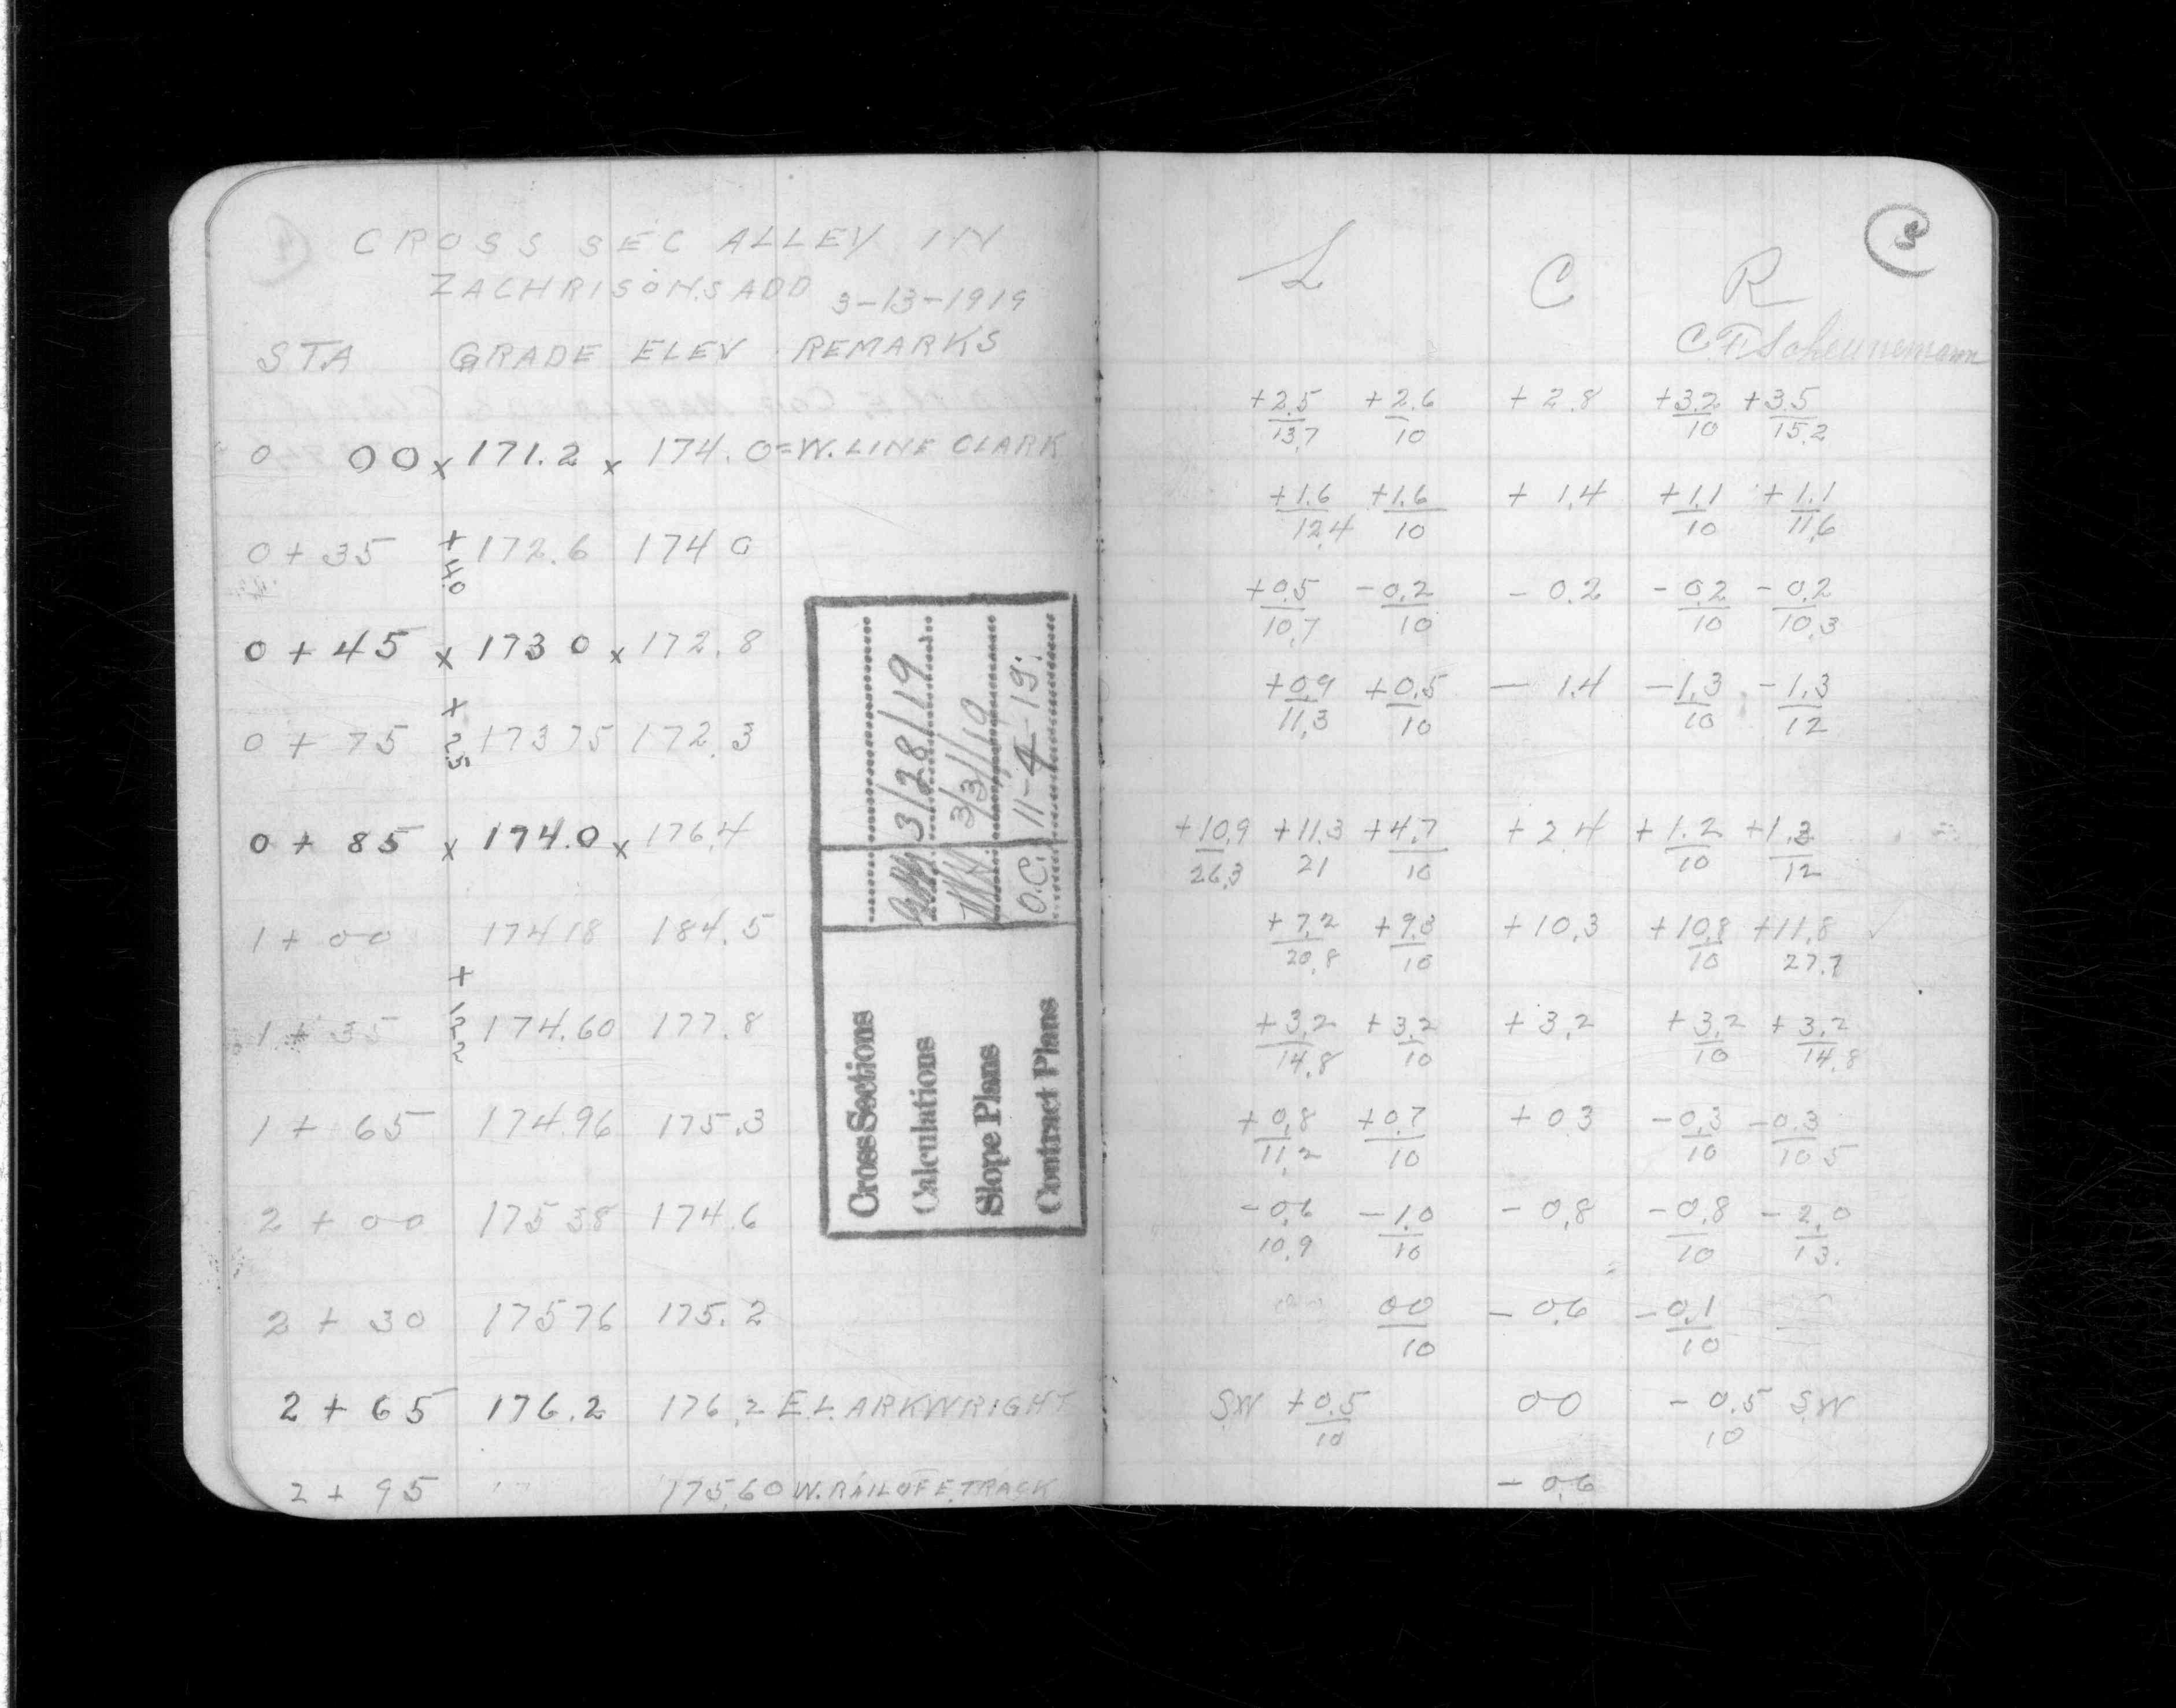 CROSS SEC ALLEY IN
ZACHRISON.S ADD 3-13-1919
STA GRADE ELEV REMARKS
0 00 x 171.2 x 174.0 = W. LINE CLARK
0 + 35 172.6 174 0
+ 4.0
0 + 45 x 173 0 x 172.8
0 + 75 173 75 172.3
+ 2.5
0 + 85 x 174.0 x 176.4
1 + 00 174 18 184.5
+ 1.22
1 + 35 174.60 177.8
1 + 65 174.96 175.3
2 + 00 175 38 174.6
2 + 30 175 76 175.2
2 + 65 176.2 176.2 E.L. ARKWRIGHT
2 + 95 175.60 W. RAIL OF E. TRACK
Cross Sections
Calculations 3/28/19
Slope Plans 3/31/19
Contract Plans O.C. 11-4-19.
3
L C R
C. F. Scheunemann
+2.5 +2.6 +2.8 +3.2 +3.5
13.7 10 10 15.2
+1.6 +1.6 +1.4 +1.1 +1.1
12.4 10 10 11.6
+0.5 -0.2 -0.2 -0.2 -0.2
10.7 10 10 10.3
+0.9 +0.5 -1.4 -1.3 -1.3
11.3 10 10 12
+10.9 +11.3 +4.7 +2.4 +1.2 +1.3
26.3 21 10 10 12
+7.2 +9.3 +10.3 +10.8 +11.8 ✓
20.8 10 10 27.7
+3.2 +3.2 +3.2 +3.2 +3.2
14.8 10 10 14.8
+0.8 +0.7 +0 3 -0.3 -0.3
11.2 10 10 10 5
-0.6 -1.0 -0.8 -0.8 -2.0
10.9 10 10 13.
00 -0.6 -0.1
10 10
SW +0.5 00 -0.5 S.W
10 10
-0.6